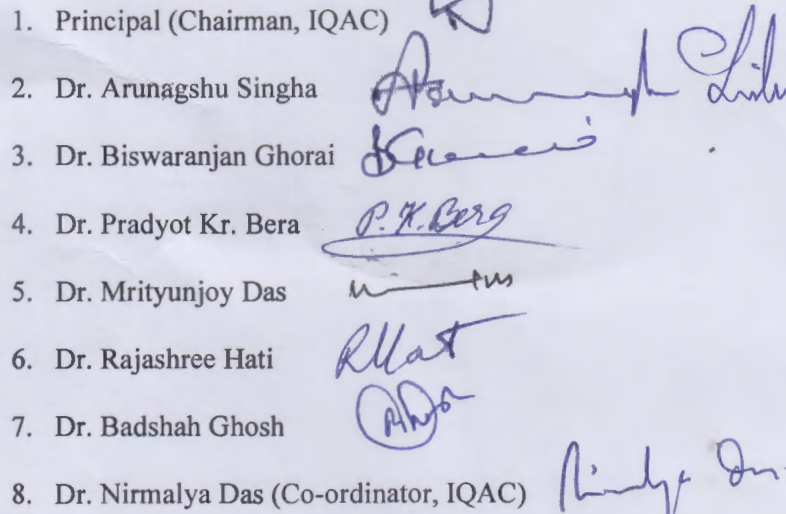 1. Principal (Chairman, IQAC)
2. Dr. Arunagshu Singha
3. Dr. Biswaranjan Ghorai
4. Dr. Pradyot Kr. Bera P.K. Bera
5. Dr. Mrityunjoy Das
6. Dr. Rajashree Hati
7. Dr. Badshah Ghosh
8. Dr. Nirmalya Das (Co-ordinator, IQAC) Nirmalya Das